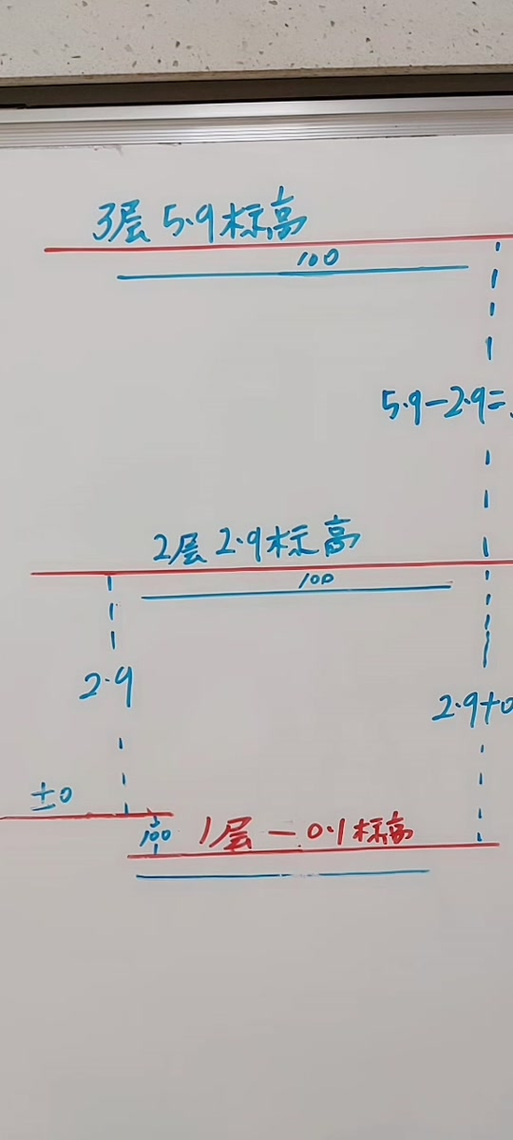 3层 5.9标高
100
5.9-2.9=
2层 2.9标高
100
2.9
2.9+0
±0
100
1层 -0.1标高